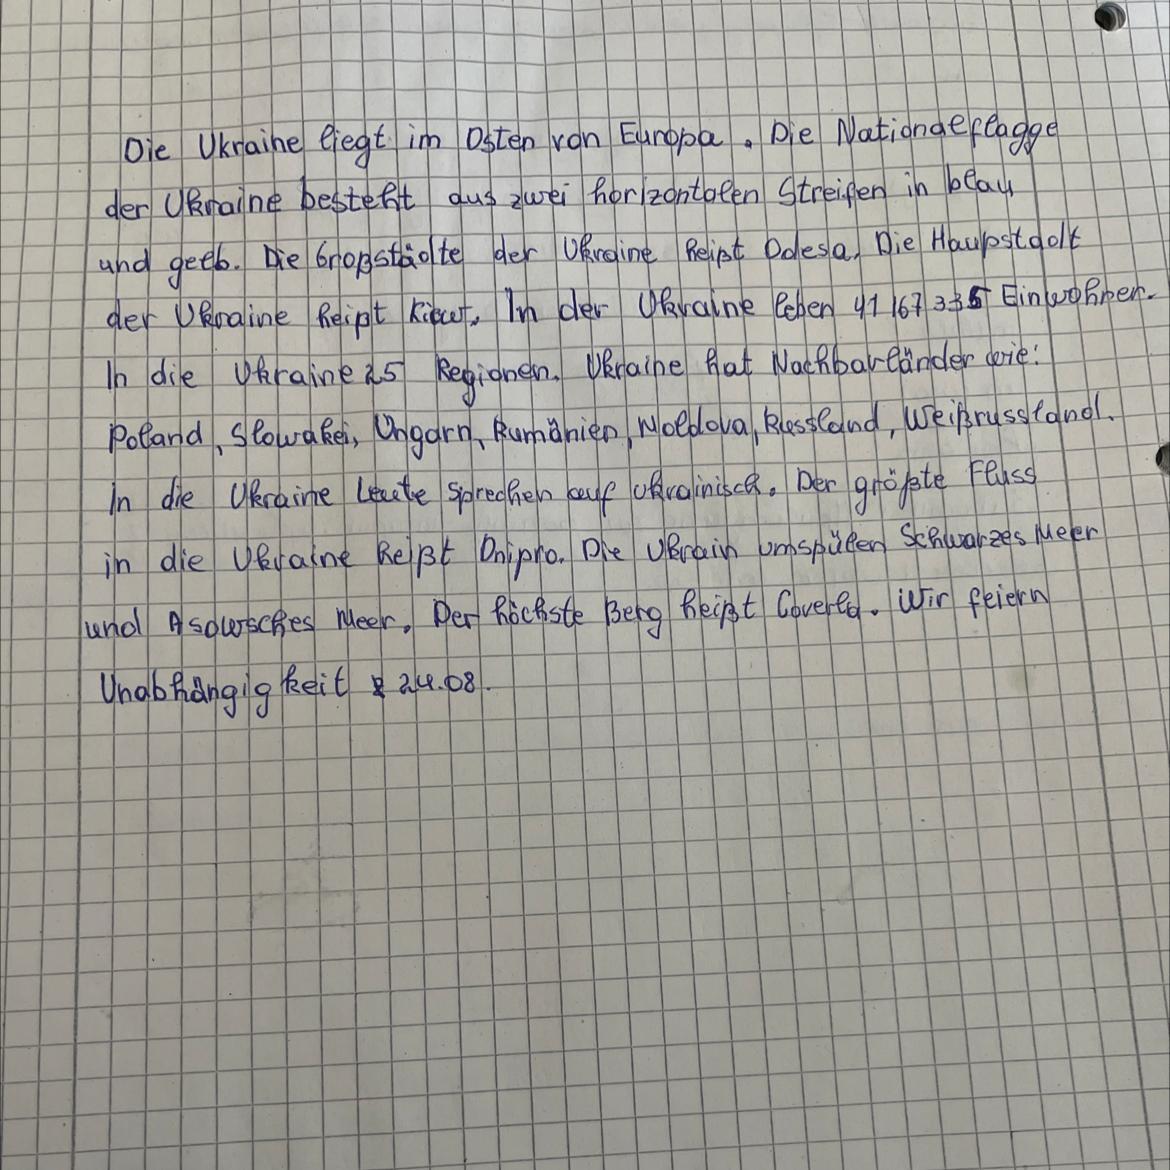 Die Ukraine liegt im Osten von Europa. Die Nationalflagge
der Ukraine besteht aus zwei horizontalen Streifen in blau
und gelb. Die Großstädte der Ukraine heißt Odesa. Die Haupstadt
der Ukraine heißt Kiew. In der Ukraine leben 41 167 335 Einwohner.
In die Ukraine 25 Regionen. Ukraine hat Nachbarländer wie:
Poland, Slowakei, Ungarn, Rumänien, Moldova, Russland, Weißrussland.
In die Ukraine Leute sprechen auf ukrainisch. Der größte Fluss
in die Ukraine heißt Dnipro. Die Ukrain umspülen Schwarzes Meer
und Asowsches Meer. Der höchste Berg heißt Goverla. Wir feiern
Unabhängigkeit 24.08.